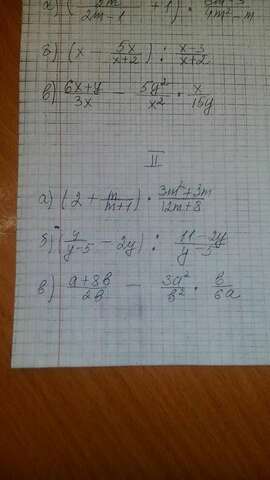 а) (5m/2m-1 + 1) · 6m-3/4m²-m
б) (x - 5x/x+2) : x-3/x+2
в) 6x+y/3x - 5y²/x² · x/15y
II
а) (2 + m/m+1) · 3m²+3m/12m+8
б) (y/y-5 - 2y) : 11-2y/y-5
в) a+8b/2b - 3a²/b² · b/6a